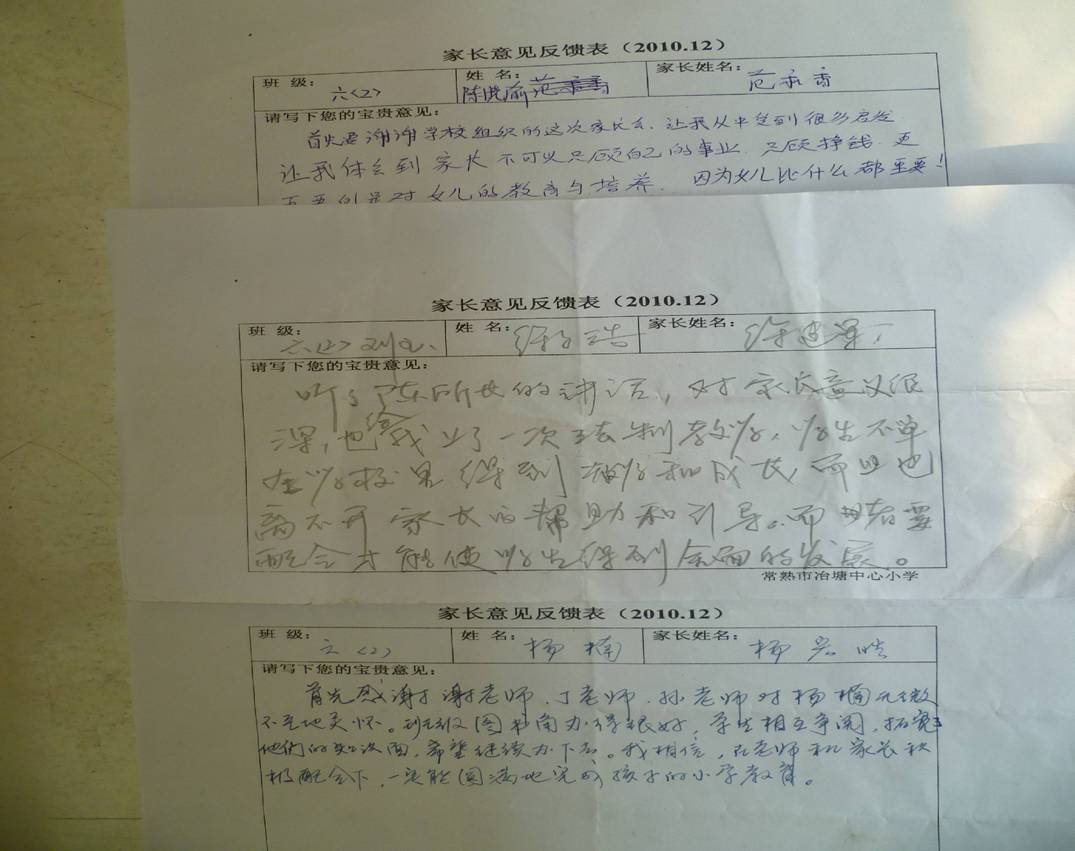 家长意见反馈表（2010.12）
班 级： 六<2> 姓 名： 陈 家长姓名： 范 香
请写下您的宝贵意见：
首先要谢谢学校组织的这次家长会，让我从中受到很多启发
让我体会到家长不可以只顾自己的事业，只顾挣钱，更
重要的是对女儿的教育与培养，因为女儿比什么都重要！
家长意见反馈表（2010.12）
班 级： 六<2> 姓 名： 徐 浩 家长姓名： 徐建
请写下您的宝贵意见：
听了陈所长的讲话，对家长意义很
深，也给我上了一次法制教学，学生不单
在学校里得到 和成长，而且也
离不开家长的帮助和引导。而 者要
配合才能使学生得到全面的发展。
常熟市冶塘中心小学
家长意见反馈表（2010.12）
班 级： 六<2> 姓 名： 杨楠 家长姓名： 杨宏皓
请写下您的宝贵意见：
首先感谢谢老师、丁老师、孙老师对杨楠无微
不至地关怀。班级图书角办得很好，学生相互争阅，拓宽
他们的知识面，希望继续办下去。我相信，在老师和家长积
极配合下，一定能圆满地完成孩子的小学教育。